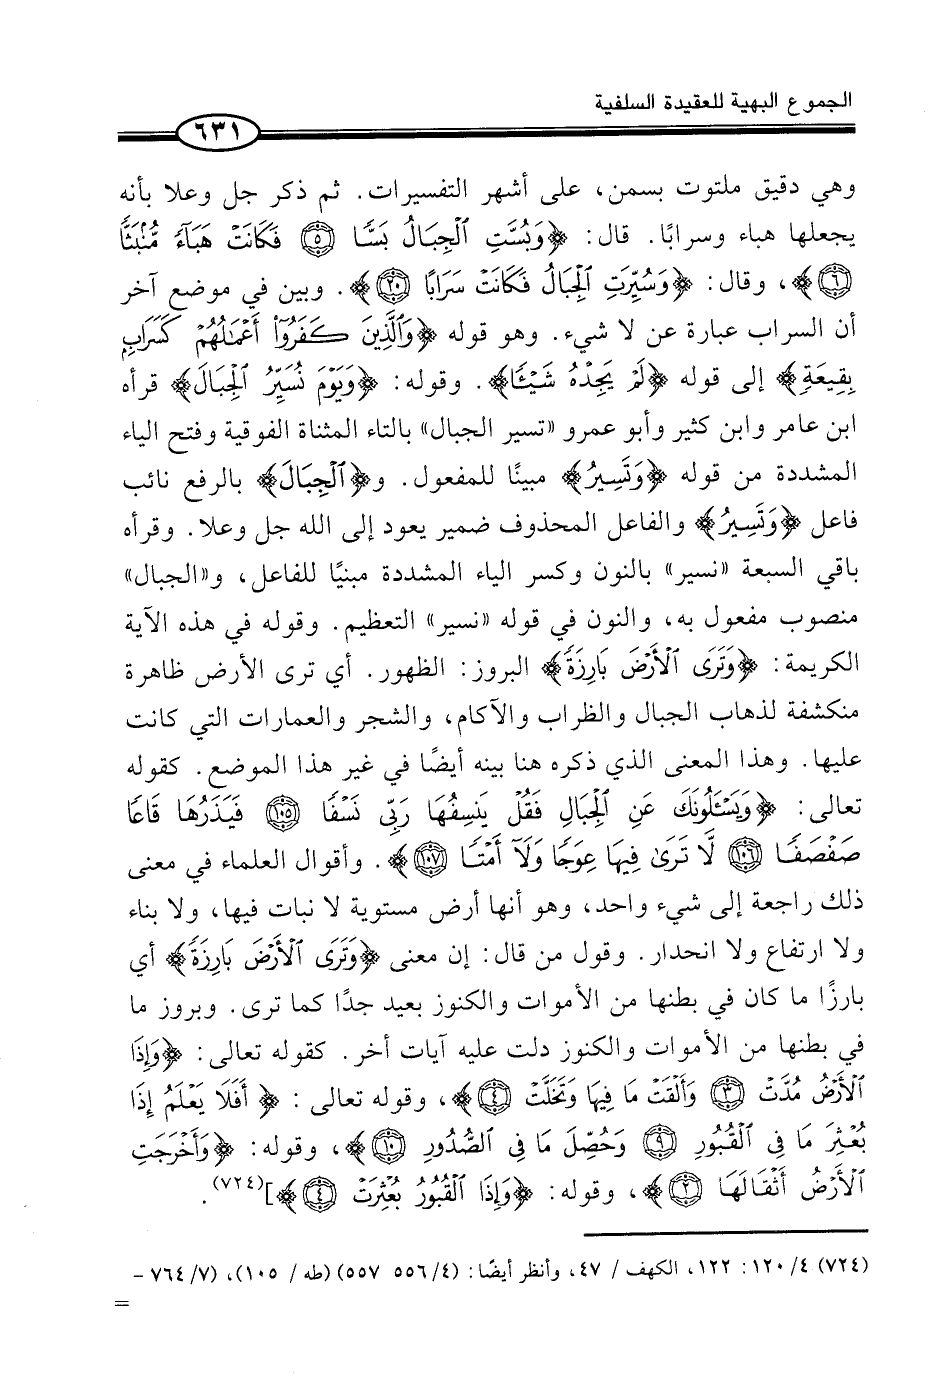 الجموع البهية للعقيدة السلفية
٦٣١
وهي دقيق ملتوت بسمن، على أشهر التفسيرات. ثم ذكر جل وعلا بأنه
يجعلها هباء وسرابًا. قال: ﴿وَبُسَّتِ ٱلْجِبَالُ بَسًّا ۝٥ فَكَانَتْ هَبَآءً مُّنۢبَثًّا
۝٦﴾، وقال: ﴿وَسُيِّرَتِ ٱلْجِبَالُ فَكَانَتْ سَرَابًا ۝٢٠﴾. وبين في موضع آخر
أن السراب عبارة عن لا شيء. وهو قوله ﴿وَٱلَّذِينَ كَفَرُوٓا۟ أَعْمَٰلُهُمْ كَسَرَابٍۭ
بِقِيعَةٍ﴾ إلى قوله ﴿لَمْ يَجِدْهُ شَيْـًٔا﴾. وقوله: ﴿وَيَوْمَ نُسَيِّرُ ٱلْجِبَالَ﴾ قرأه
ابن عامر وابن كثير وأبو عمرو «تسير الجبال» بالتاء المثناة الفوقية وفتح الياء
المشددة من قوله ﴿وَتَسِيرُ﴾ مبينًا للمفعول. و﴿ٱلْجِبَالَ﴾ بالرفع نائب
فاعل ﴿وَتَسِيرُ﴾ والفاعل المحذوف ضمير يعود إلى الله جل وعلا. وقرأه
باقي السبعة «نسير» بالنون وكسر الياء المشددة مبنيًا للفاعل، و«الجبال»
منصوب مفعول به، والنون في قوله «نسير» التعظيم. وقوله في هذه الآية
الكريمة: ﴿وَتَرَى ٱلْأَرْضَ بَارِزَةً﴾ البروز: الظهور. أي ترى الأرض ظاهرة
منكشفة لذهاب الجبال والظراب والآكام، والشجر والعمارات التي كانت
عليها. وهذا المعنى الذي ذكره هنا بينه أيضًا في غير هذا الموضع. كقوله
تعالى: ﴿وَيَسْـَٔلُونَكَ عَنِ ٱلْجِبَالِ فَقُلْ يَنسِفُهَا رَبِّى نَسْفًا ۝١٠٥ فَيَذَرُهَا قَاعًا
صَفْصَفًا ۝١٠٦ لَّا تَرَىٰ فِيهَا عِوَجًا وَلَآ أَمْتًا ۝١٠٧﴾. وأقوال العلماء في معنى
ذلك راجعة إلى شيء واحد، وهو أنها أرض مستوية لا نبات فيها، ولا بناء
ولا ارتفاع ولا انحدار. وقول من قال: إن معنى ﴿وَتَرَى ٱلْأَرْضَ بَارِزَةً﴾ أي
بارزًا ما كان في بطنها من الأموات والكنوز بعيد جدًا كما ترى. وبروز ما
في بطنها من الأموات والكنوز دلت عليه آيات أخر. كقوله تعالى: ﴿وَإِذَا
ٱلْأَرْضُ مُدَّتْ ۝٣ وَأَلْقَتْ مَا فِيهَا وَتَخَلَّتْ ۝٤﴾، وقوله تعالى: ﴿أَفَلَا يَعْلَمُ إِذَا
بُعْثِرَ مَا فِى ٱلْقُبُورِ ۝٩ وَحُصِّلَ مَا فِى ٱلصُّدُورِ ۝١٠﴾، وقوله: ﴿وَأَخْرَجَتِ
ٱلْأَرْضُ أَثْقَالَهَا ۝٢﴾، وقوله: ﴿وَإِذَا ٱلْقُبُورُ بُعْثِرَتْ ۝٤﴾](٧٢٤).
(٧٢٤) ٤/ ١٢٠: ١٢٢، الكهف / ٤٧، وأنظر أيضًا: (٤/ ٥٥٦ ٥٥٧) (طه / ١٠٥)، (٧/ ٧٦٤ –
=